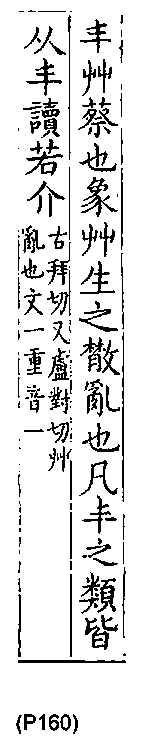 丯艸蔡也象艸生之散亂也凡丯之類皆
从丯讀若介
古拜切又盧對切艸
亂也文一重音一
(P160)